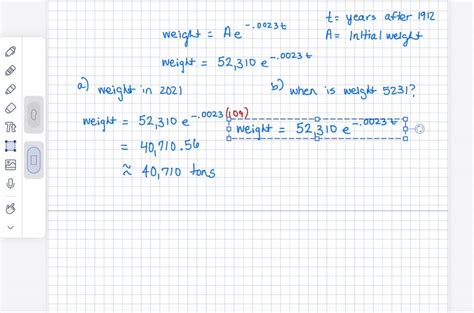 weight = A e^-.0023t
t = years after 1912
A = Initial weight
weight = 52,310 e^-.0023t
a) weight in 2021
b) when is weight 5231?
weight = 52,310 e^-.0023(109)
weight = 52,310 e^-.0023t
= 40,710.56
≈ 40,710 tons